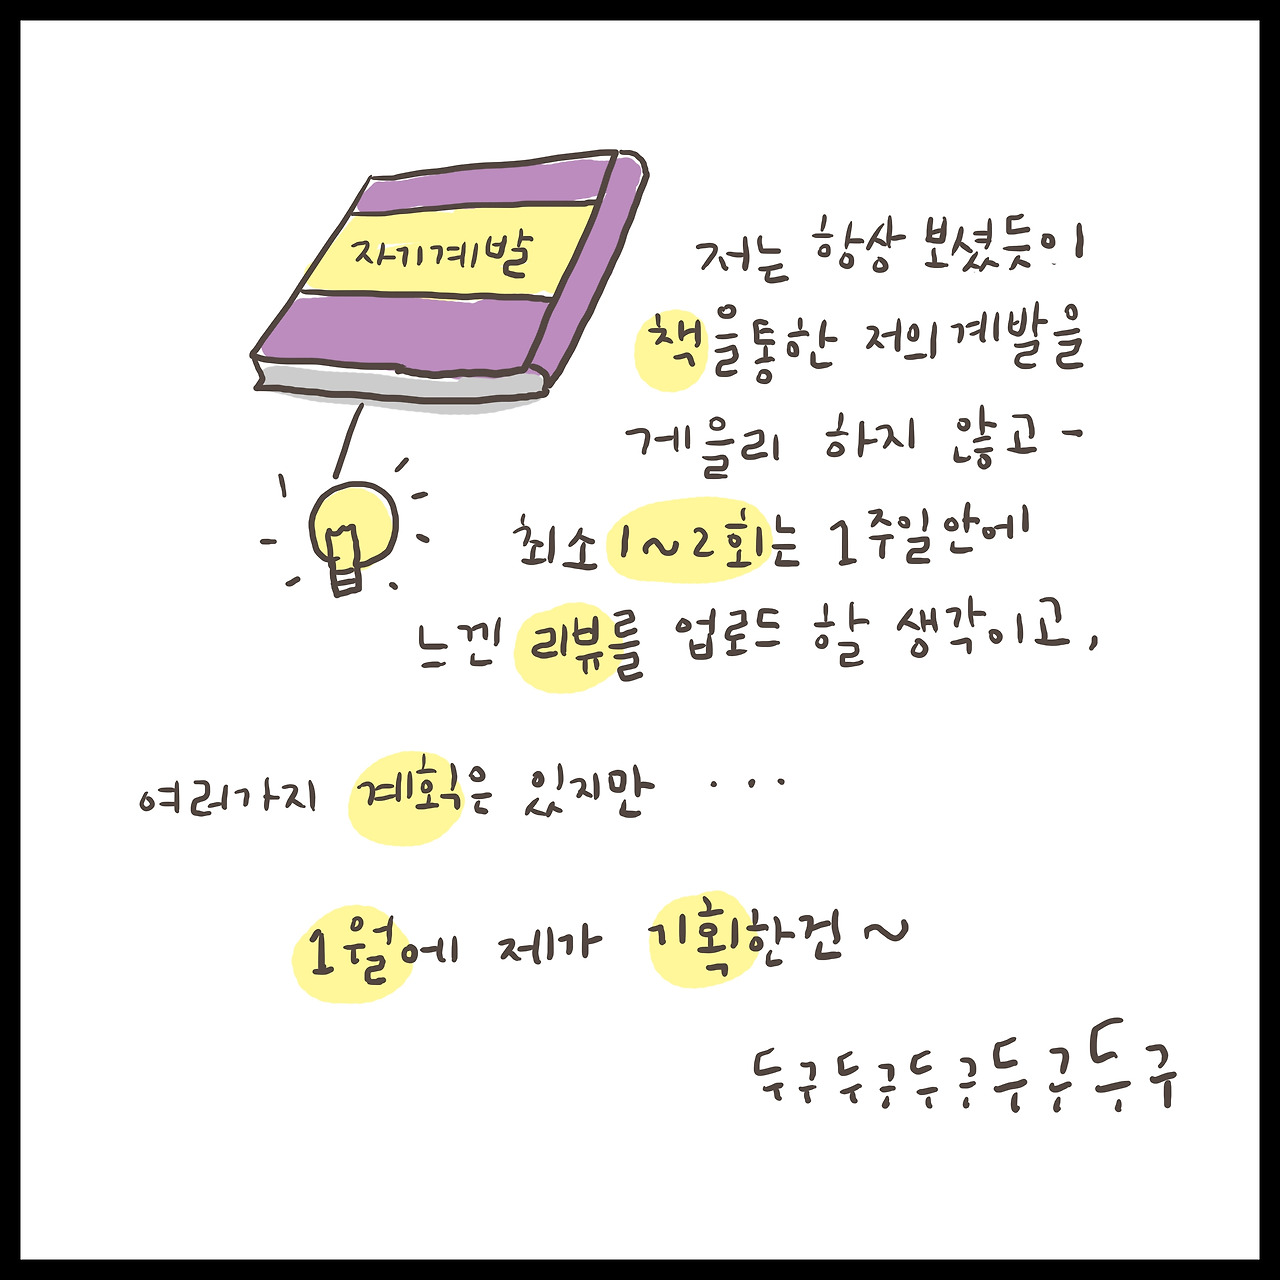 자기계발
저는 항상 보셨듯이
책을통한 저의계발을
게을리 하지 않고-
최소 1~2회는 1주일안에
느낀 리뷰를 업로드 할 생각이고,
여러가지 계획은 있지만 ...
1월에 제가 기획한건~
두구두구두구두구두구